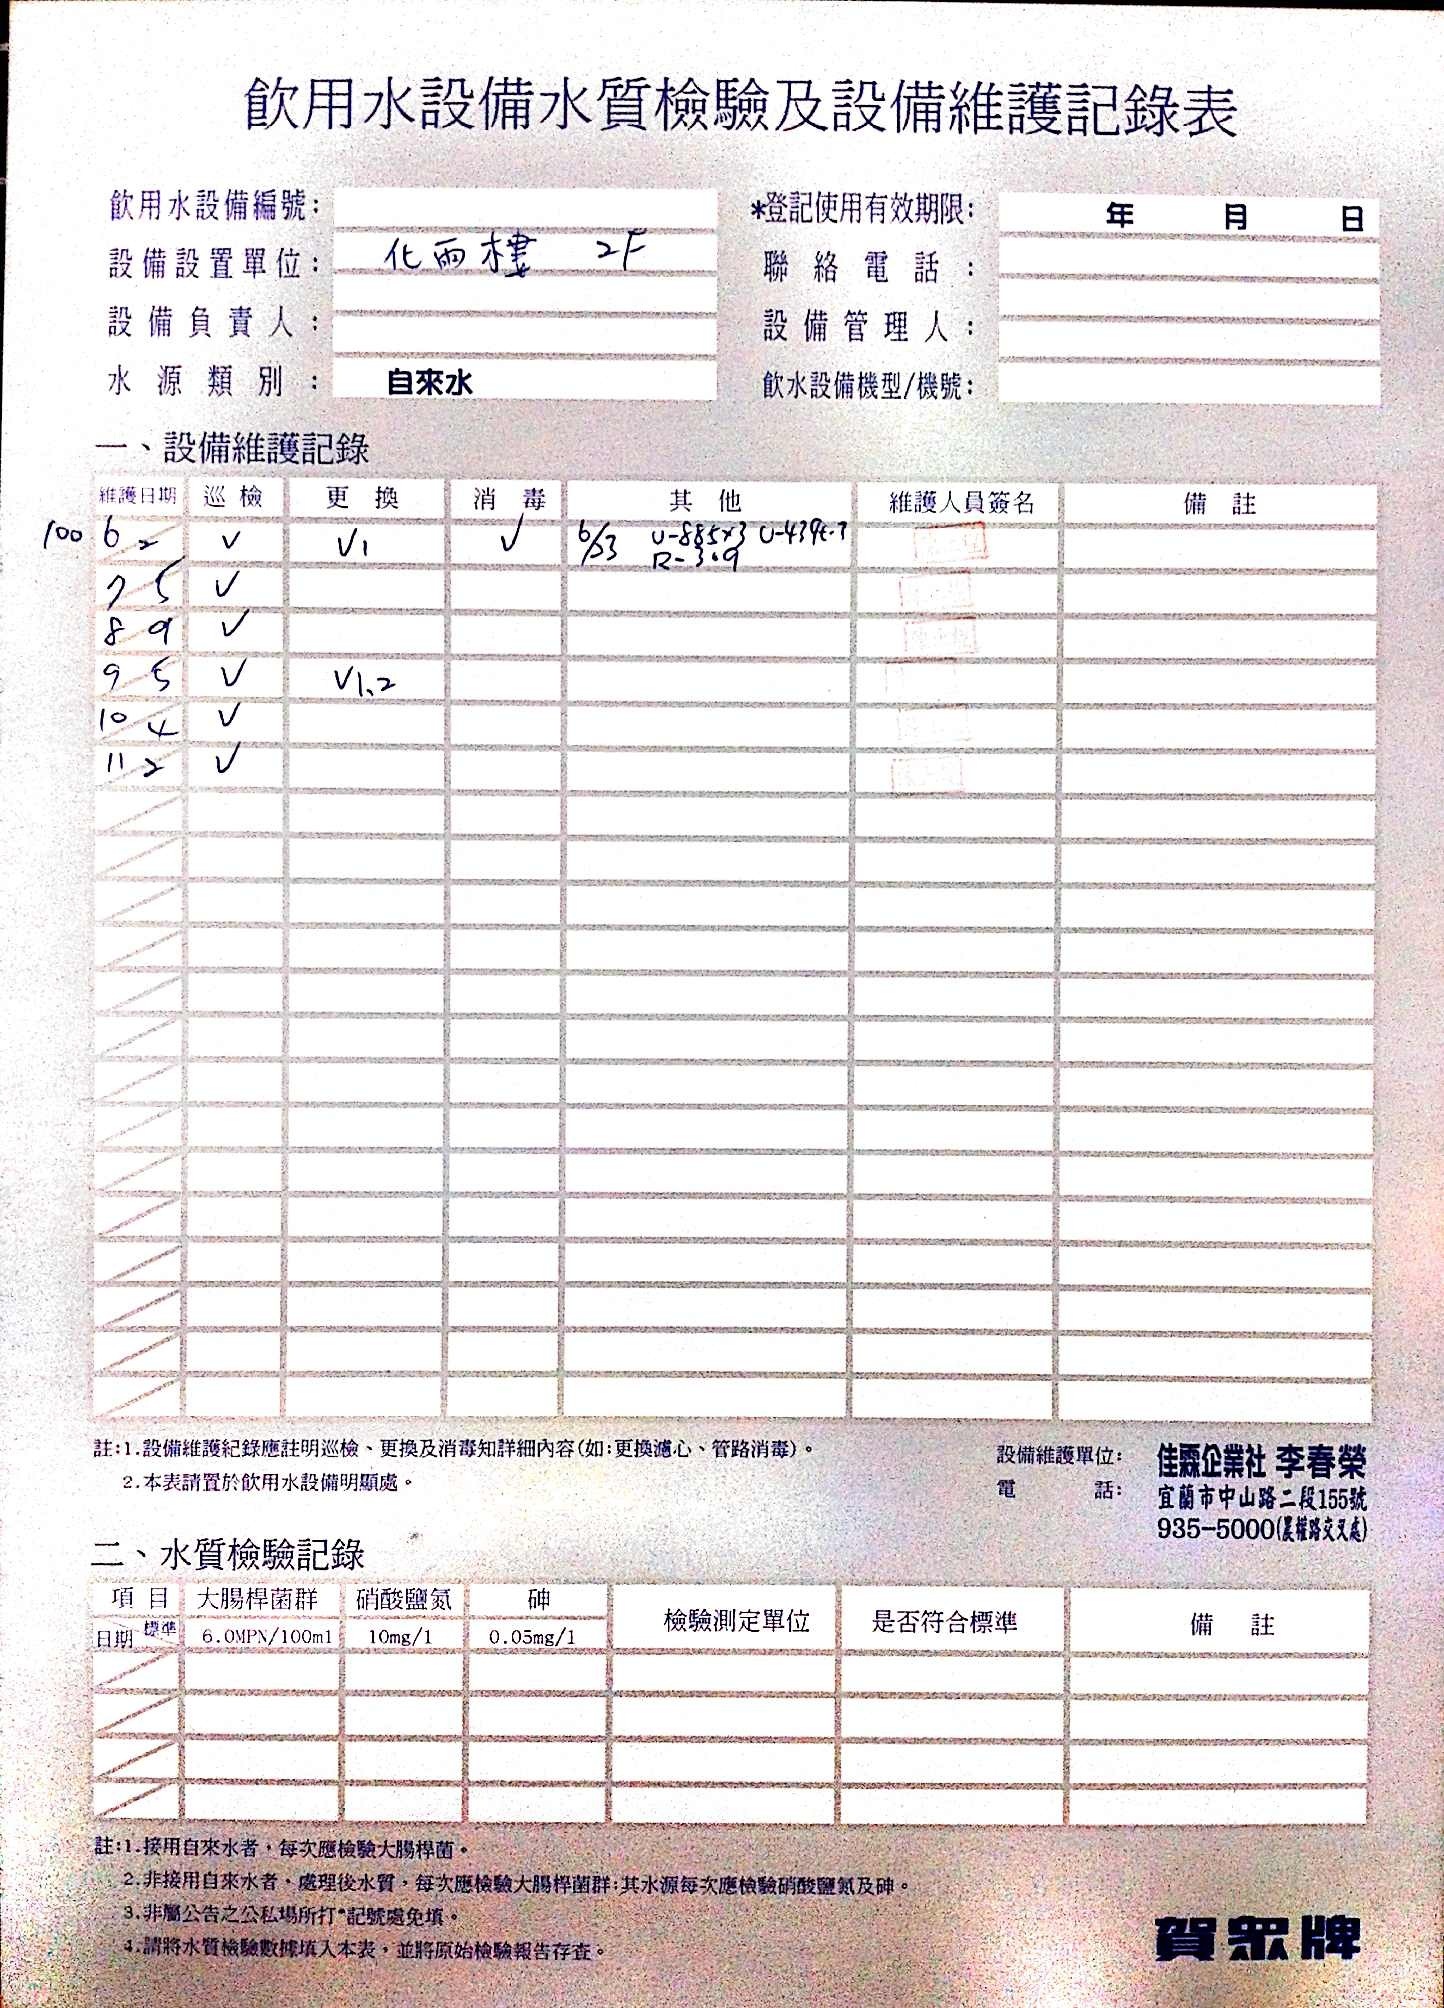 飲用水設備水質檢驗及設備維護記錄表
飲用水設備編號:
*登記使用有效期限: 年 月 日
設備設置單位: 化雨樓 2F
聯絡電話:
設備負責人:
設備管理人:
水源類別: 自來水
飲水設備機型/機號:
一、設備維護記錄
維護日期 巡檢 更換 消毒 其他 維護人員簽名 備註
100 6/2 ✓ ✓1 ✓ 6/23 U-885x3
7/5 ✓
8/9 ✓
9/5 ✓ ✓1、2
10/4 ✓
11/2 ✓
註:1.設備維護紀錄應註明巡檢、更換及消毒知詳細內容(如:更換濾心、管路消毒)。
2.本表請置於飲用水設備明顯處。
設備維護單位: 佳霖企業社 李春榮
電話: 宜蘭市中山路二段155號
935-5000(農權路交叉處)
二、水質檢驗記錄
項目 大腸桿菌群 硝酸鹽氮 砷 檢驗測定單位 是否符合標準 備註
日期 標準 6.0MPN/100ml 10mg/l 0.05mg/l
註:1.接用自來水者,每次應檢驗大腸桿菌。
2.非接用自來水者,處理後水質,每次應檢驗大腸桿菌群;其水源每次應檢驗硝酸鹽氮及砷。
3.非屬公告之公私場所打*記號處免填。
4.請將水質檢驗數據填入本表,並將原始檢驗報告存查。
賀眾牌